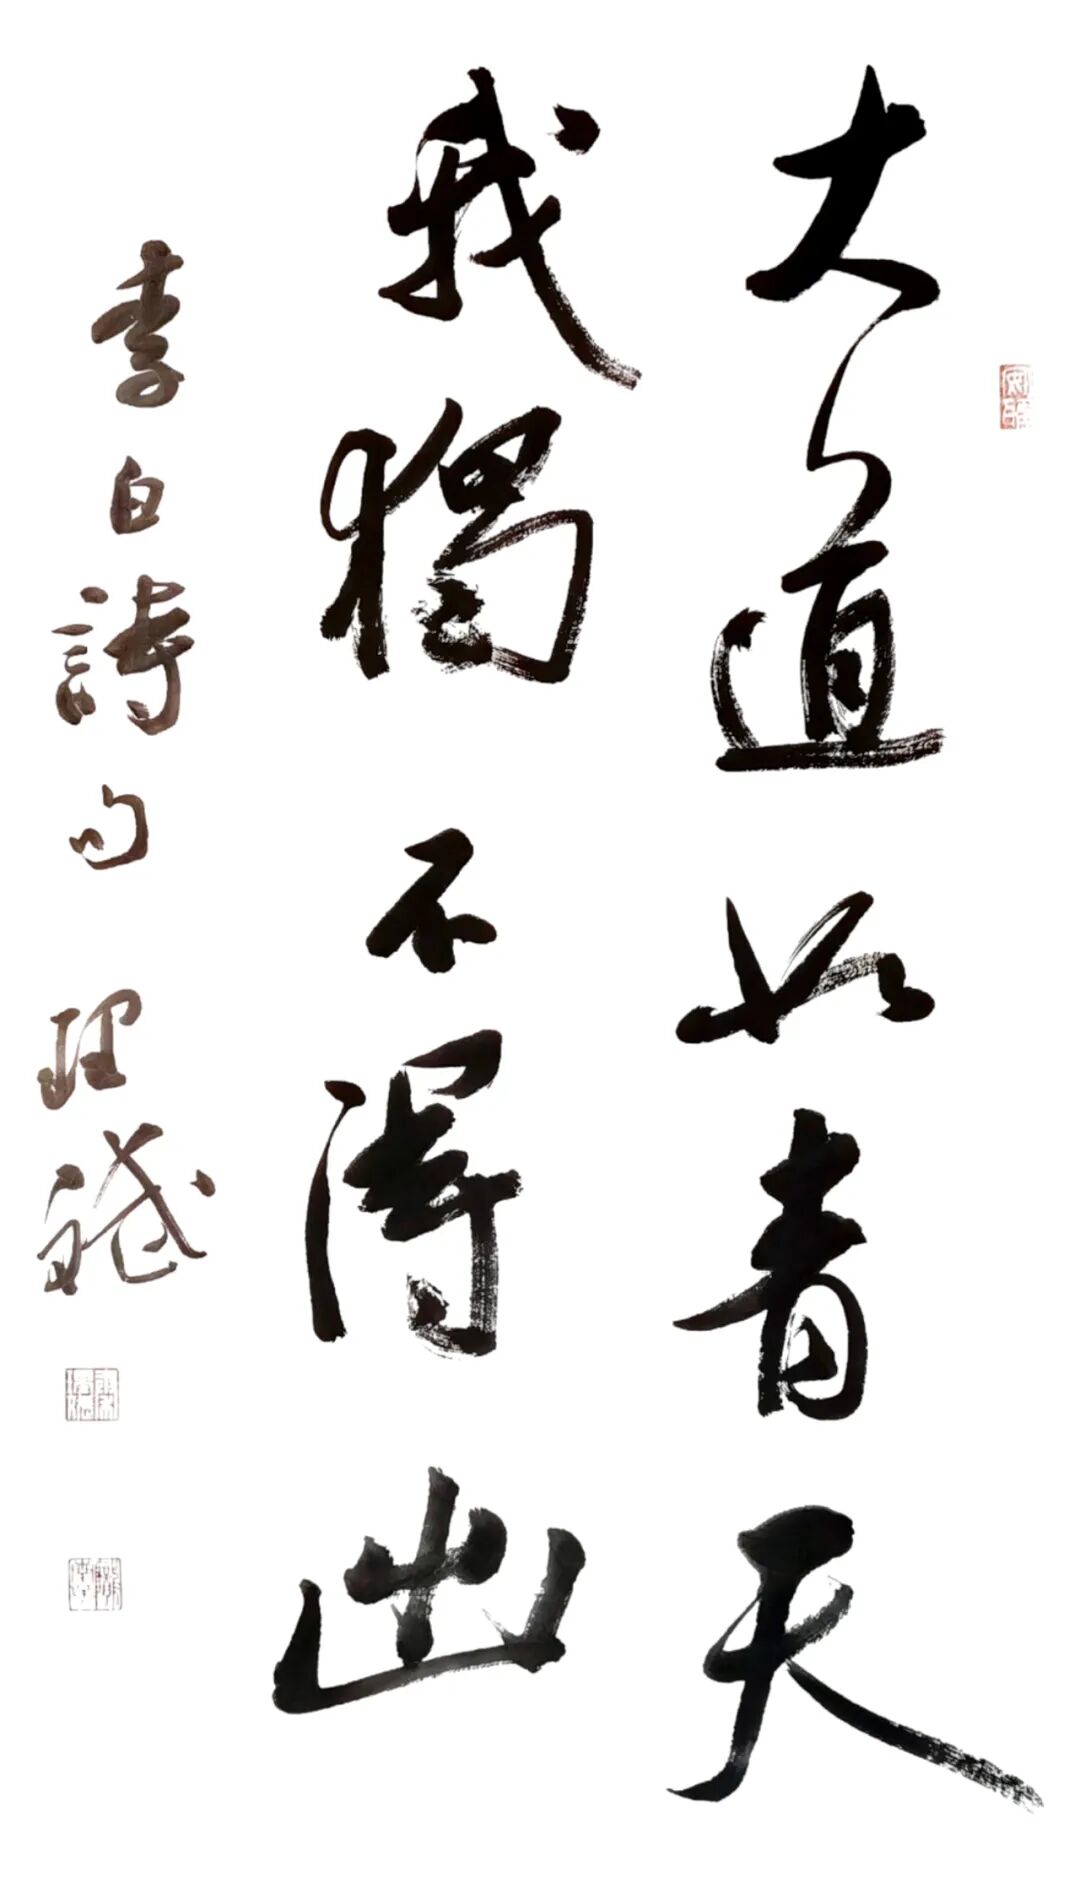 大道如青天
我獨不得出
李白詩句